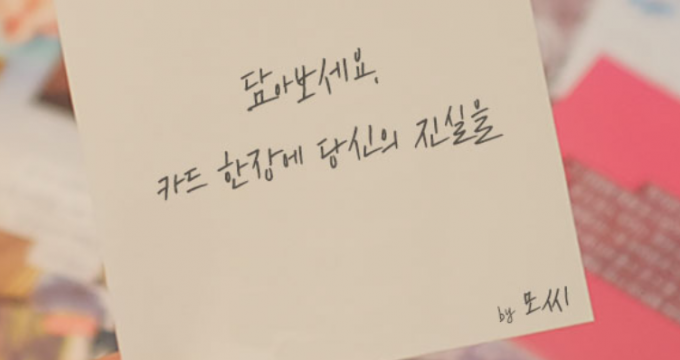 담아보세요,
카드 한장에 당신의 진실을
by 모씨